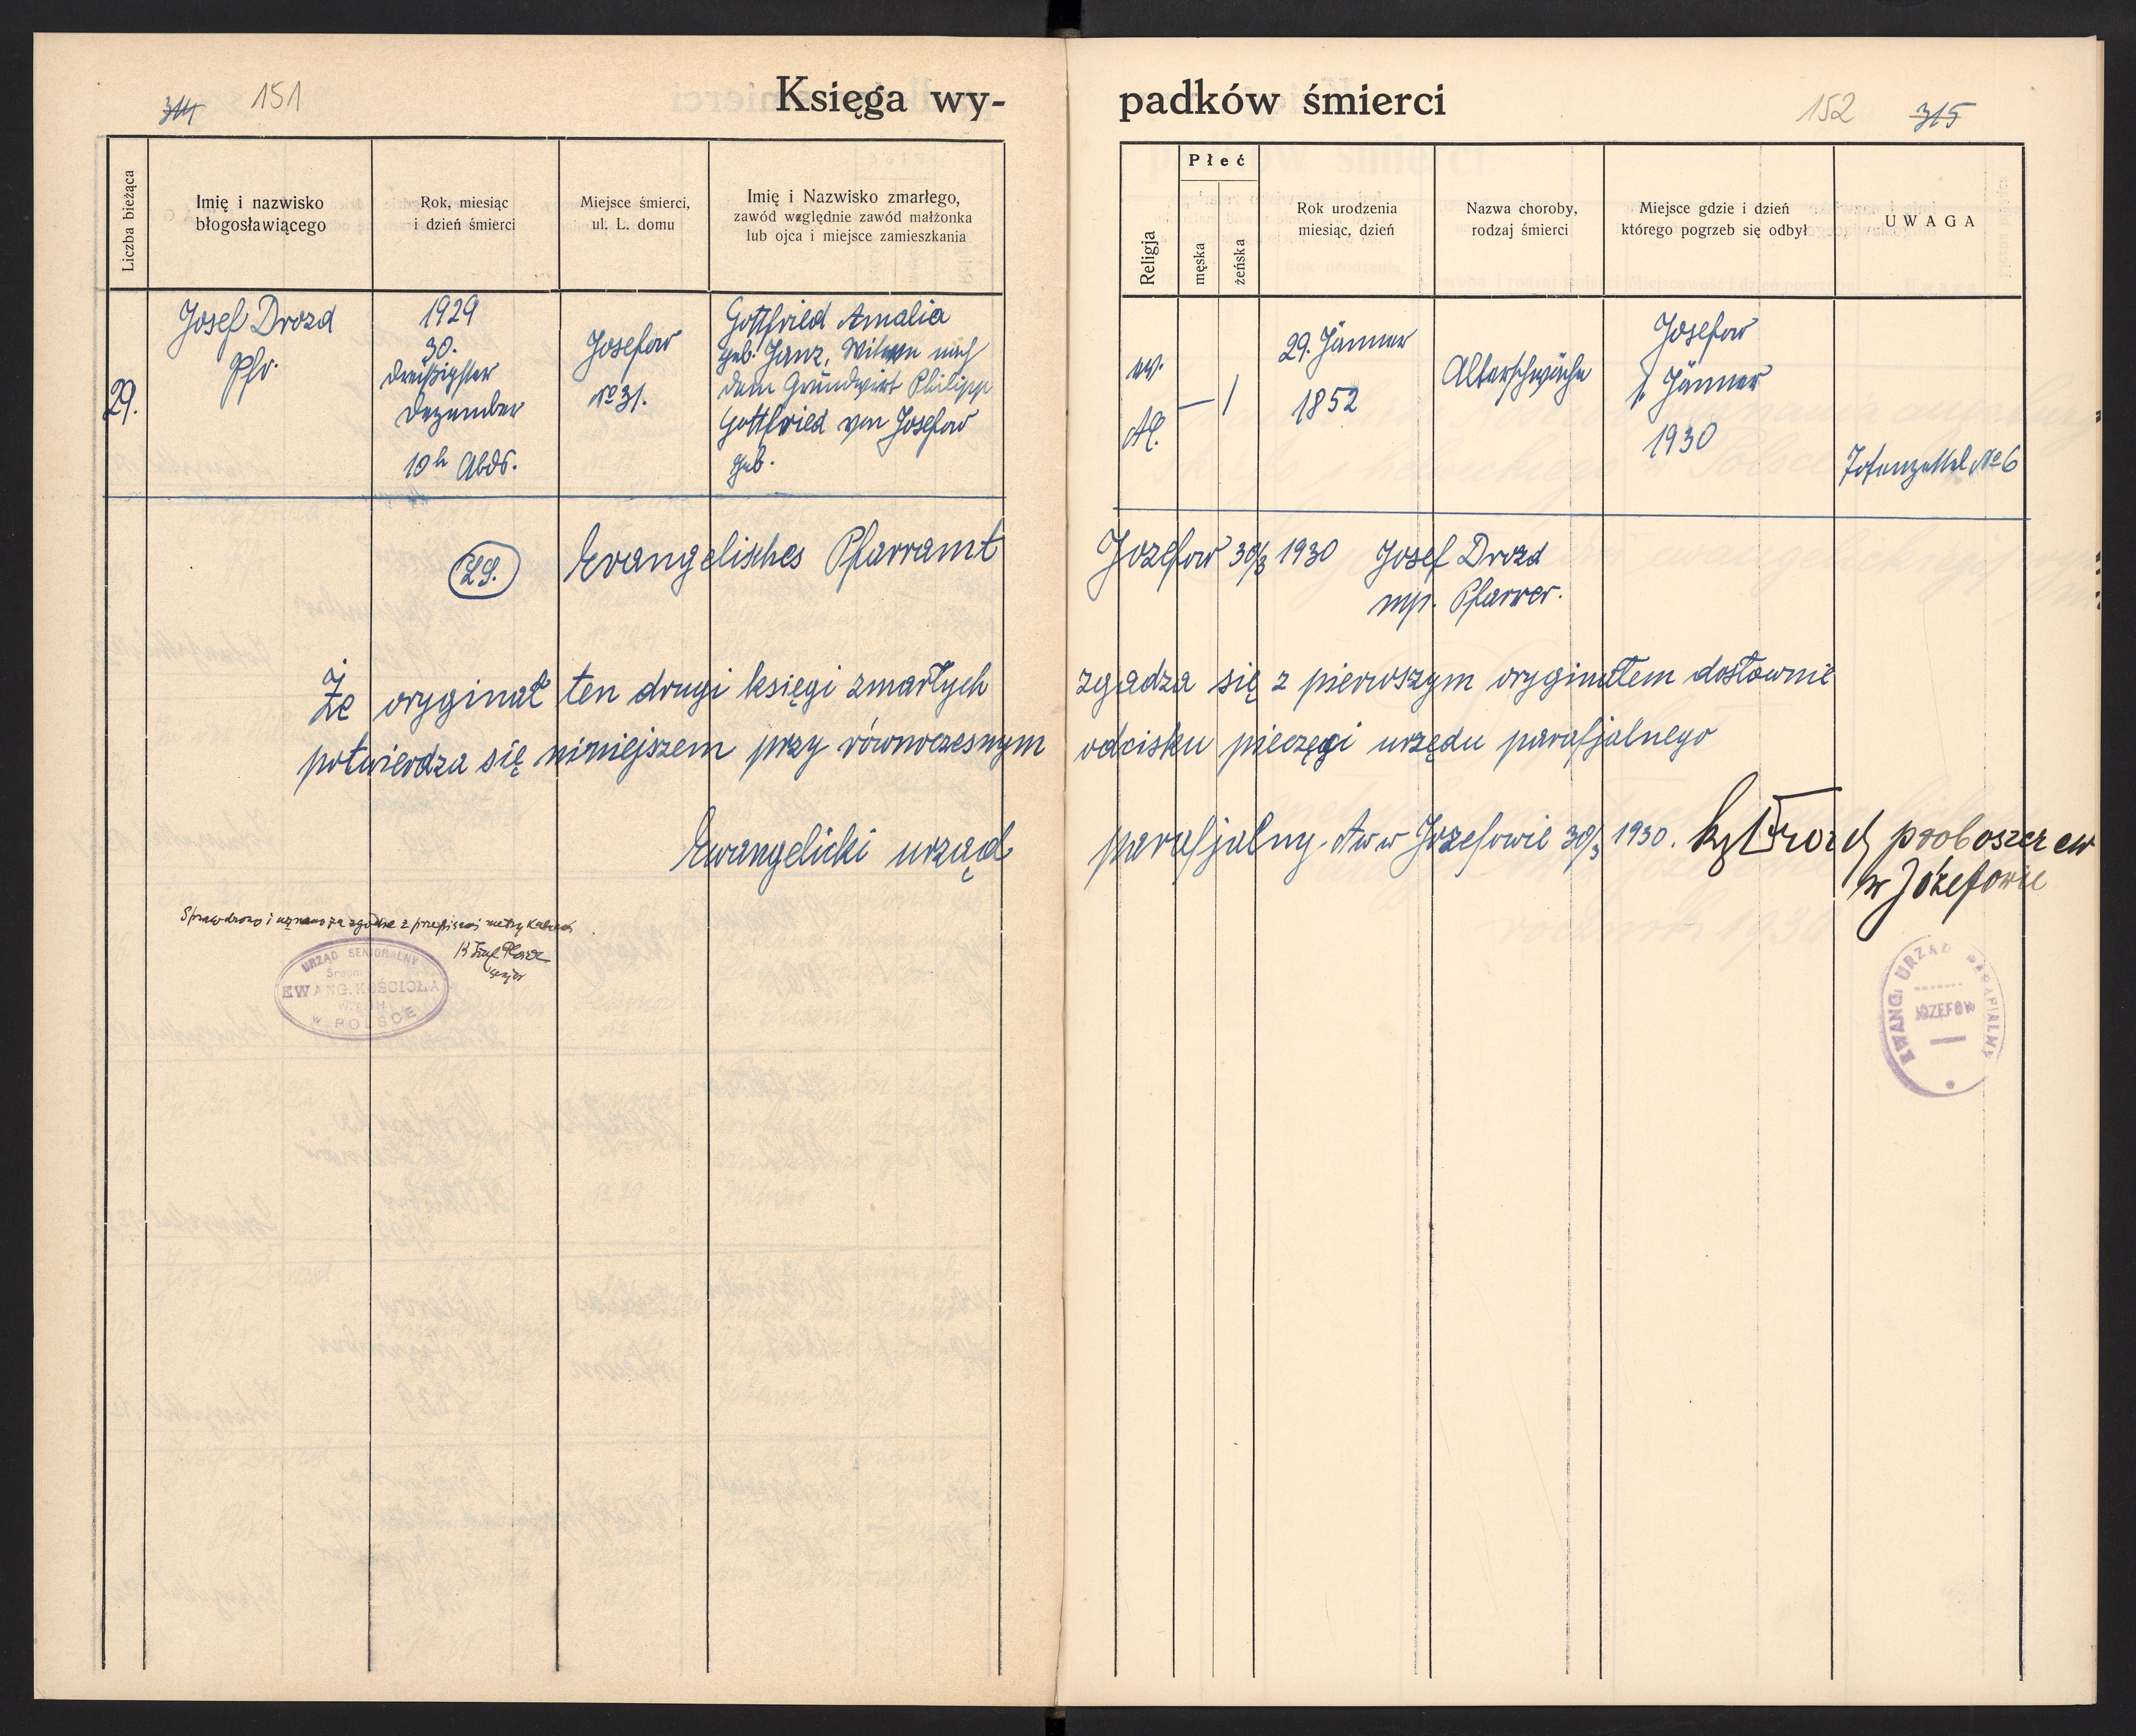 314 151
Księga wy-
padków śmierci
152 315
Liczba bieżąca
Imię i nazwisko
błogosławiącego
Rok, miesiąc
i dzień śmierci
Miejsce śmierci,
ul. L. domu
Imię i Nazwisko zmarłego,
zawód względnie zawód małżonka
lub ojca i miejsce zamieszkania
Religja
Płeć
męska
żeńska
Rok urodzenia
miesiąc, dzień
Nazwa choroby,
rodzaj śmierci
Miejsce gdzie i dzień
którego pogrzeb się odbył
UWAGA
29.
Josef Drozd
Pfr.
1929
30.
Dreißigster
Dezember
10h Abds.
Josefow
No 31.
Gottfried Amalia
geb. Janz, Witwe nach
dem Grundwirt Philipp
Gottfried von Josefow
geb.
ev.
AC.
— /
29. Jänner
1852
Altersschwäche
Josefow
1. Jänner
1930
Totenzettel No 6
29. Evangelisches Pfarramt
Jozefow 30/3 1930 Josef Drozd
mp. Pfarrer.
Że oryginał ten drugi księgi zmarłych zgadza się z pierwszym oryginałem dosłownie
potwierdza się niniejszem przy równoczesnym odcisku pieczęgi urzędu parafjalnego
Ewangelicki urząd parafjalny. Aw w Jozefowie 30/3 1930. Ks Drozd proboszcz ew
w Józefowie
Sprawdzono i uznano za zgodne z przepisami
URZĄD SENIORALNY
EWANG. KOŚCIOŁA
W POLSCE
EWANG. URZĄD PARAFIALNY
JÓZEFÓW